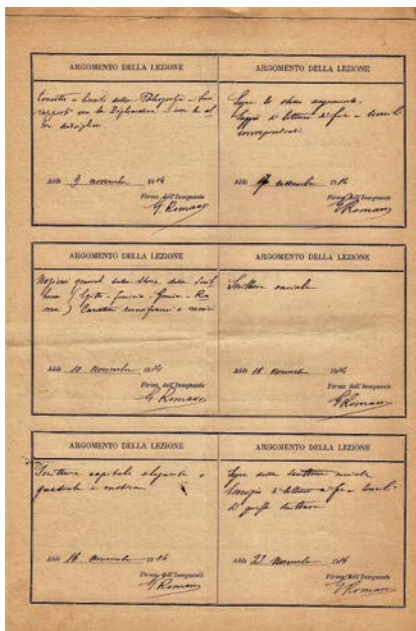 ARGOMENTO DELLA LEZIONE
Concetto e limiti della Paleografia - Suoi
rapporti con la Diplomatica e con le al-
tre discipline
Addì 9 novembre 1914
Firma dell'Insegnante
G Romano
ARGOMENTO DELLA LEZIONE
Segue lo stesso argomento.
Saggio di lettura di fac-simili
corrispondenti
Addì 17 novembre 1914
Firma dell'Insegnante
G Romano
ARGOMENTO DELLA LEZIONE
Nozioni generali sulla storia della Scrit-
tura (Egitto - Fenicia - Grecia - Ro-
ma) Caratteri cuneiformi e
Addì 10 novembre 1914
Firma dell'Insegnante
G Romano
ARGOMENTO DELLA LEZIONE
Scrittura onciale
Addì 18 novembre 1914
Firma dell'Insegnante
G Romano
ARGOMENTO DELLA LEZIONE
Scrittura capitale elegante o
quadrata e rustica
Addì 16 novembre 1914
Firma dell'Insegnante
G Romano
ARGOMENTO DELLA LEZIONE
Segue della scrittura onciale
Esercizio di lettura di fac-simili
di questa scrittura
Addì 23 novembre 1914
Firma dell'Insegnante
G Romano